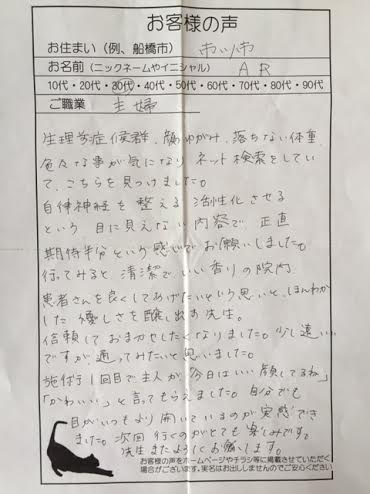 お客様の声
お住まい（例、船橋市） 市川市
お名前（ニックネームやイニシャル） AR
10代・20代・30代・40代・50代・60代・70代・80代・90代
ご職業 主婦
生理学症候群、顔ゆがみ、落ちない体重、
色々な事が気になり ネット検索をしてい
て、こちらを見つけました。
自律神経を整える 活性化させる
という 目に見えない内容で 正直
期待半分という感じでお願いしました。
行ってみると 清潔でいい香りの院内
患者さんを良くしてあげたいという思いと、ほんわか
した優しさを醸し出す先生。
信頼しておまかせしたくなりました。少し遠い
ですが、通ってみたいと思いました。
施術1回目で主人が「今日はいい顔してるね」
「かわいい」と言ってもらえました。自分でも
目がいつもより開いているのが実感でき
ました。次回 行くのがとても楽しみです。
先生またよろしくお願いします。
お客様の声をホームページやチラシ等に掲載させていただく
場合がございます。実名はお出ししませんのでご安心ください